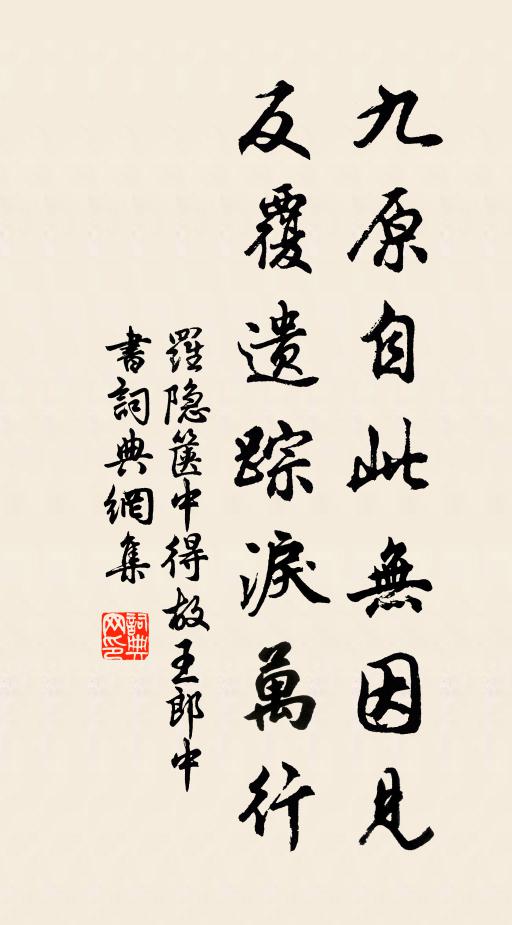 九原自此無因見
反覆遗踪淚萬行
羅隐篋中得故王郎中
書詞典網集
詞典网印